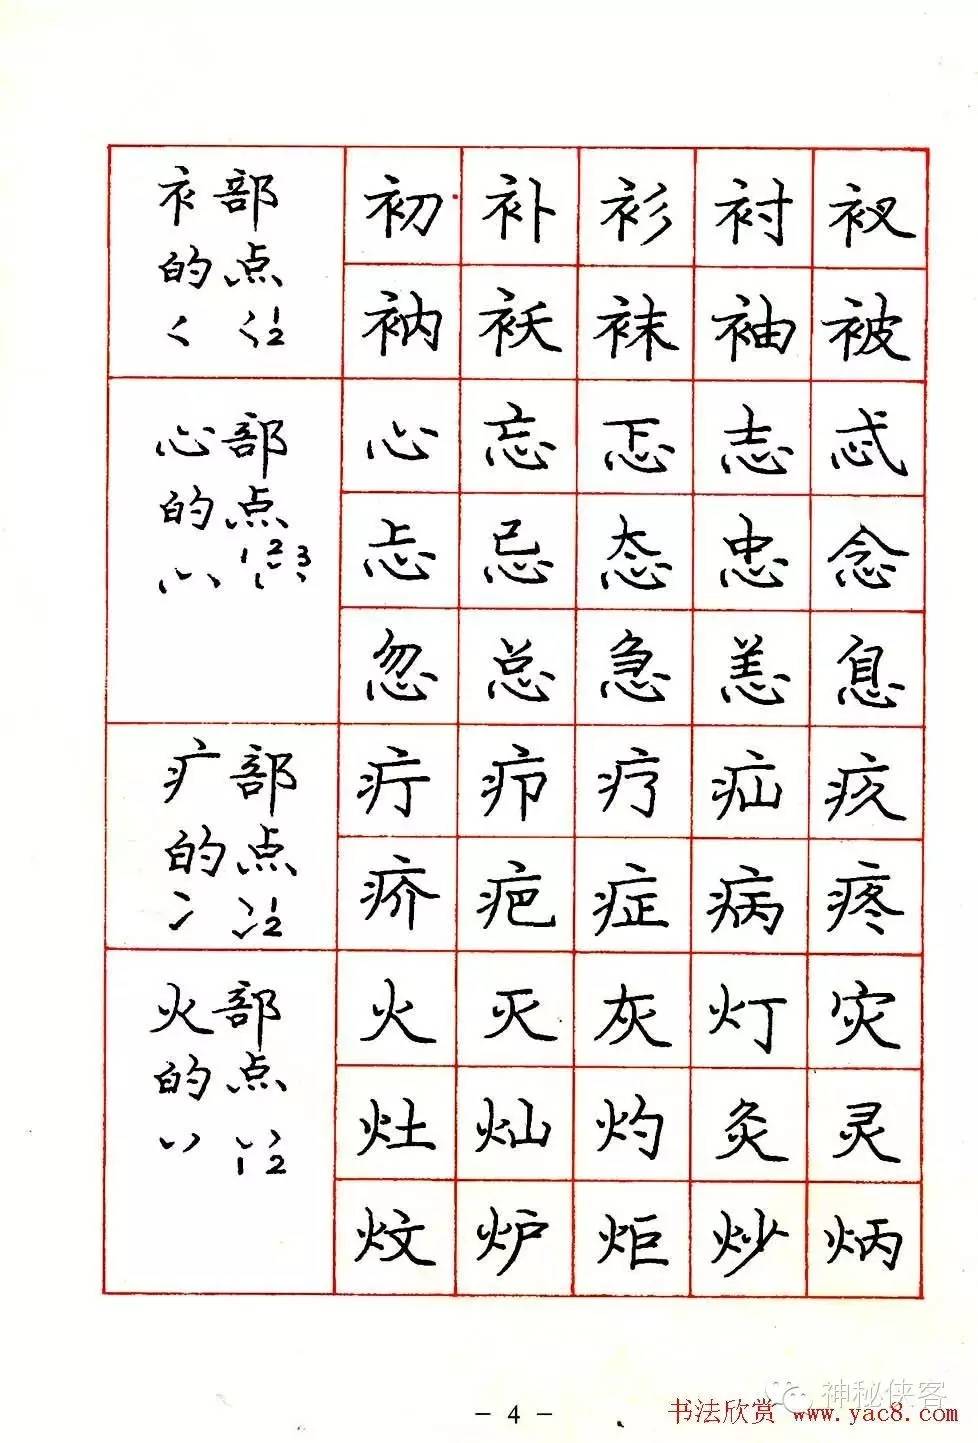 衤部
的点
1
2
初补衫衬衩
衲袄袜袖被
心部
的点
1 2 3
心忘忑志忒
忐忌态忠念
忽总急恙息
疒部
的点
1
2
疔疖疗疝疚
疥疤症病疼
火部
的点
1 2
火灭灰灯灾
灶灿灼灸灵
炆炉炬炒炳
神秘侠客
- 4 -
书法欣赏 www.yac8.com